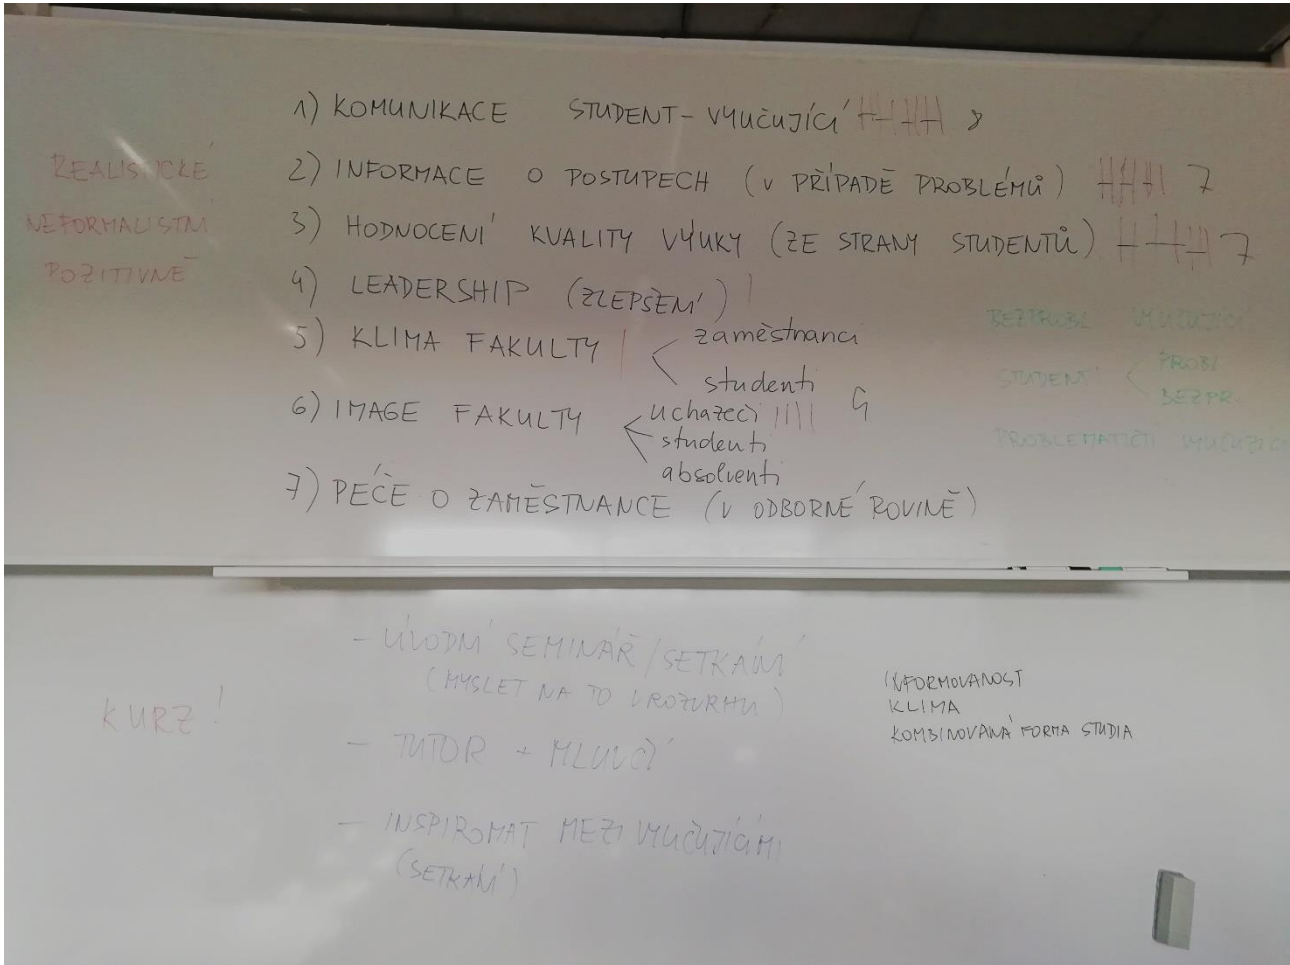 1) KOMUNIKACE STUDENT - VYUČUJÍCÍ 8
2) INFORMACE O POSTUPECH (V PŘÍPADĚ PROBLÉMŮ) 7
3) HODNOCENÍ KVALITY VÝUKY (ZE STRANY STUDENTŮ) 7
4) LEADERSHIP (ZLEPŠENÍ)
5) KLIMA FAKULTY
zaměstnanci
studenti
6) IMAGE FAKULTY
uchazeči
studenti
absolventi
7) PÉČE O ZAMĚSTNANCE (V ODBORNÉ ROVINĚ)
REALISTICKÉ
NEFORMALISTNÍ
POZITIVNĚ
BEZPROBL VYUČUJÍCÍ
STUDENTI
PROBL
BEZPR.
PROBLEMATIČTÍ VYUČUJÍCÍ
- ÚVODNÍ SEMINÁŘ / SETKÁNÍ
(MYSLET NA TO V ROZVRHU)
- TUTOR + MLUVČÍ
- INSPIROMAT MEZI VYUČUJÍCÍMI
(SETKÁNÍ)
KURZ!
INFORMOVANOST
KLIMA
KOMBINOVANÁ FORMA STUDIA